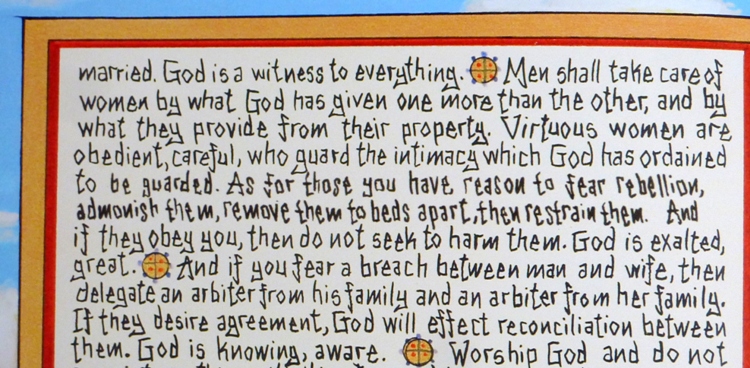 married. God is a witness to everything. Men shall take care of
women by what God has given one more than the other, and by
what they provide from their property. Virtuous women are
obedient, careful, who guard the intimacy which God has ordained
to be guarded. As for those you have reason to fear rebellion,
admonish them, remove them to beds apart, then restrain them. And
if they obey you, then do not seek to harm them. God is exalted,
great. And if you fear a breach between man and wife, then
delegate an arbiter from his family and an arbiter from her family.
If they desire agreement, God will effect reconciliation between
them. God is knowing, aware. Worship God and do not